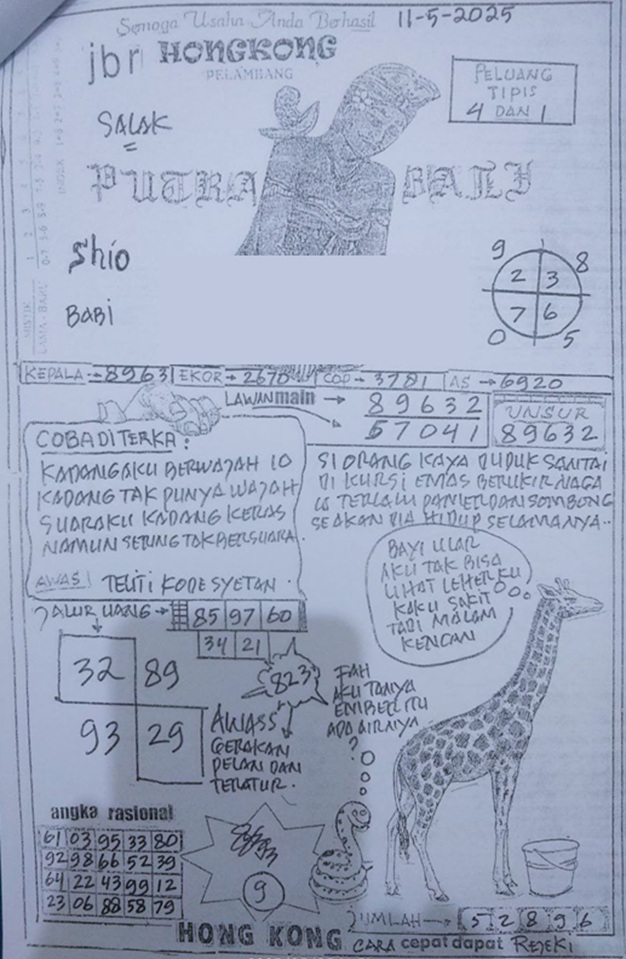 Semoga Usaha Anda Berhasil
11-5-2025
jbr HONGKONG
PELAMBANG
PELUANG
TIPIS
4 DAN 1
SALAK
PUTRA BALI
Shio
BABI
9 8
2 3
7 6
0 5
KEPALA → 8963 EKOR → 2670 COP → 3781 AS → 6920
LAWAN main → 89632
57041
UNSUR
89632
COBA DITERKA :
KADANG AKU BERWAJAH 10
KADANG TAK PUNYA WAJAH
SUARAKU KADANG KERAS
NAMUN SERING TAK BERSUARA.
AWAS! TELITI KODE SYETAN.
SI ORANG KAYA DUDUK SANTAI
DI KURSI EMAS BERUKIR NAGA
TERLALU PAMER DAN SOMBONG
SEAKAN DIA HIDUP SELAMANYA..
BAYI ULAR
AKU TAK BISA
LIHAT LEHERKU
KAKU SAKIT
TADI MALAM
KENCAN
JALUR UANG → 85 97 60
34 21
32 89
93 29
823
AWASS
GERAKAN
PELAN DAN
TERATUR.
FAH
AKU TANYA
EMBER ITU
ADA AIRNYA
?
angka rasional
61 03 95 33 80
92 98 66 52 39
64 22 43 99 12
23 06 88 58 79
9
JUMLAH → 5 2 8 9 6
HONG KONG CARA cepat dapat REJEKI